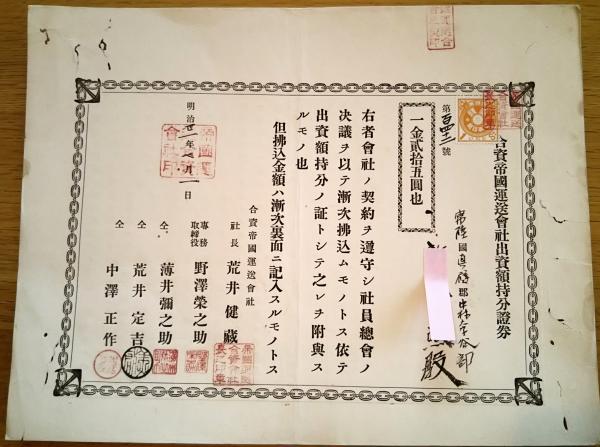 合資帝國運送會社出資額持分證券
第 號
一金貳拾五圓也
常陸國真壁郡
殿
右者會社ノ契約ヲ遵守シ社員總會ノ
決議ヲ以テ漸次拂込ムモノトス依テ
出資額持分ノ証トシテ之レヲ附與ス
ルモノ也
但拂込金額ハ漸次裏面ニ記入スルモノトス
明治 年 月 日
合資帝國運送會社
社長 荒井健藏
專務取締役 野澤榮之助
仝 薄井彌之助
仝 荒井定吉
仝 中澤正作